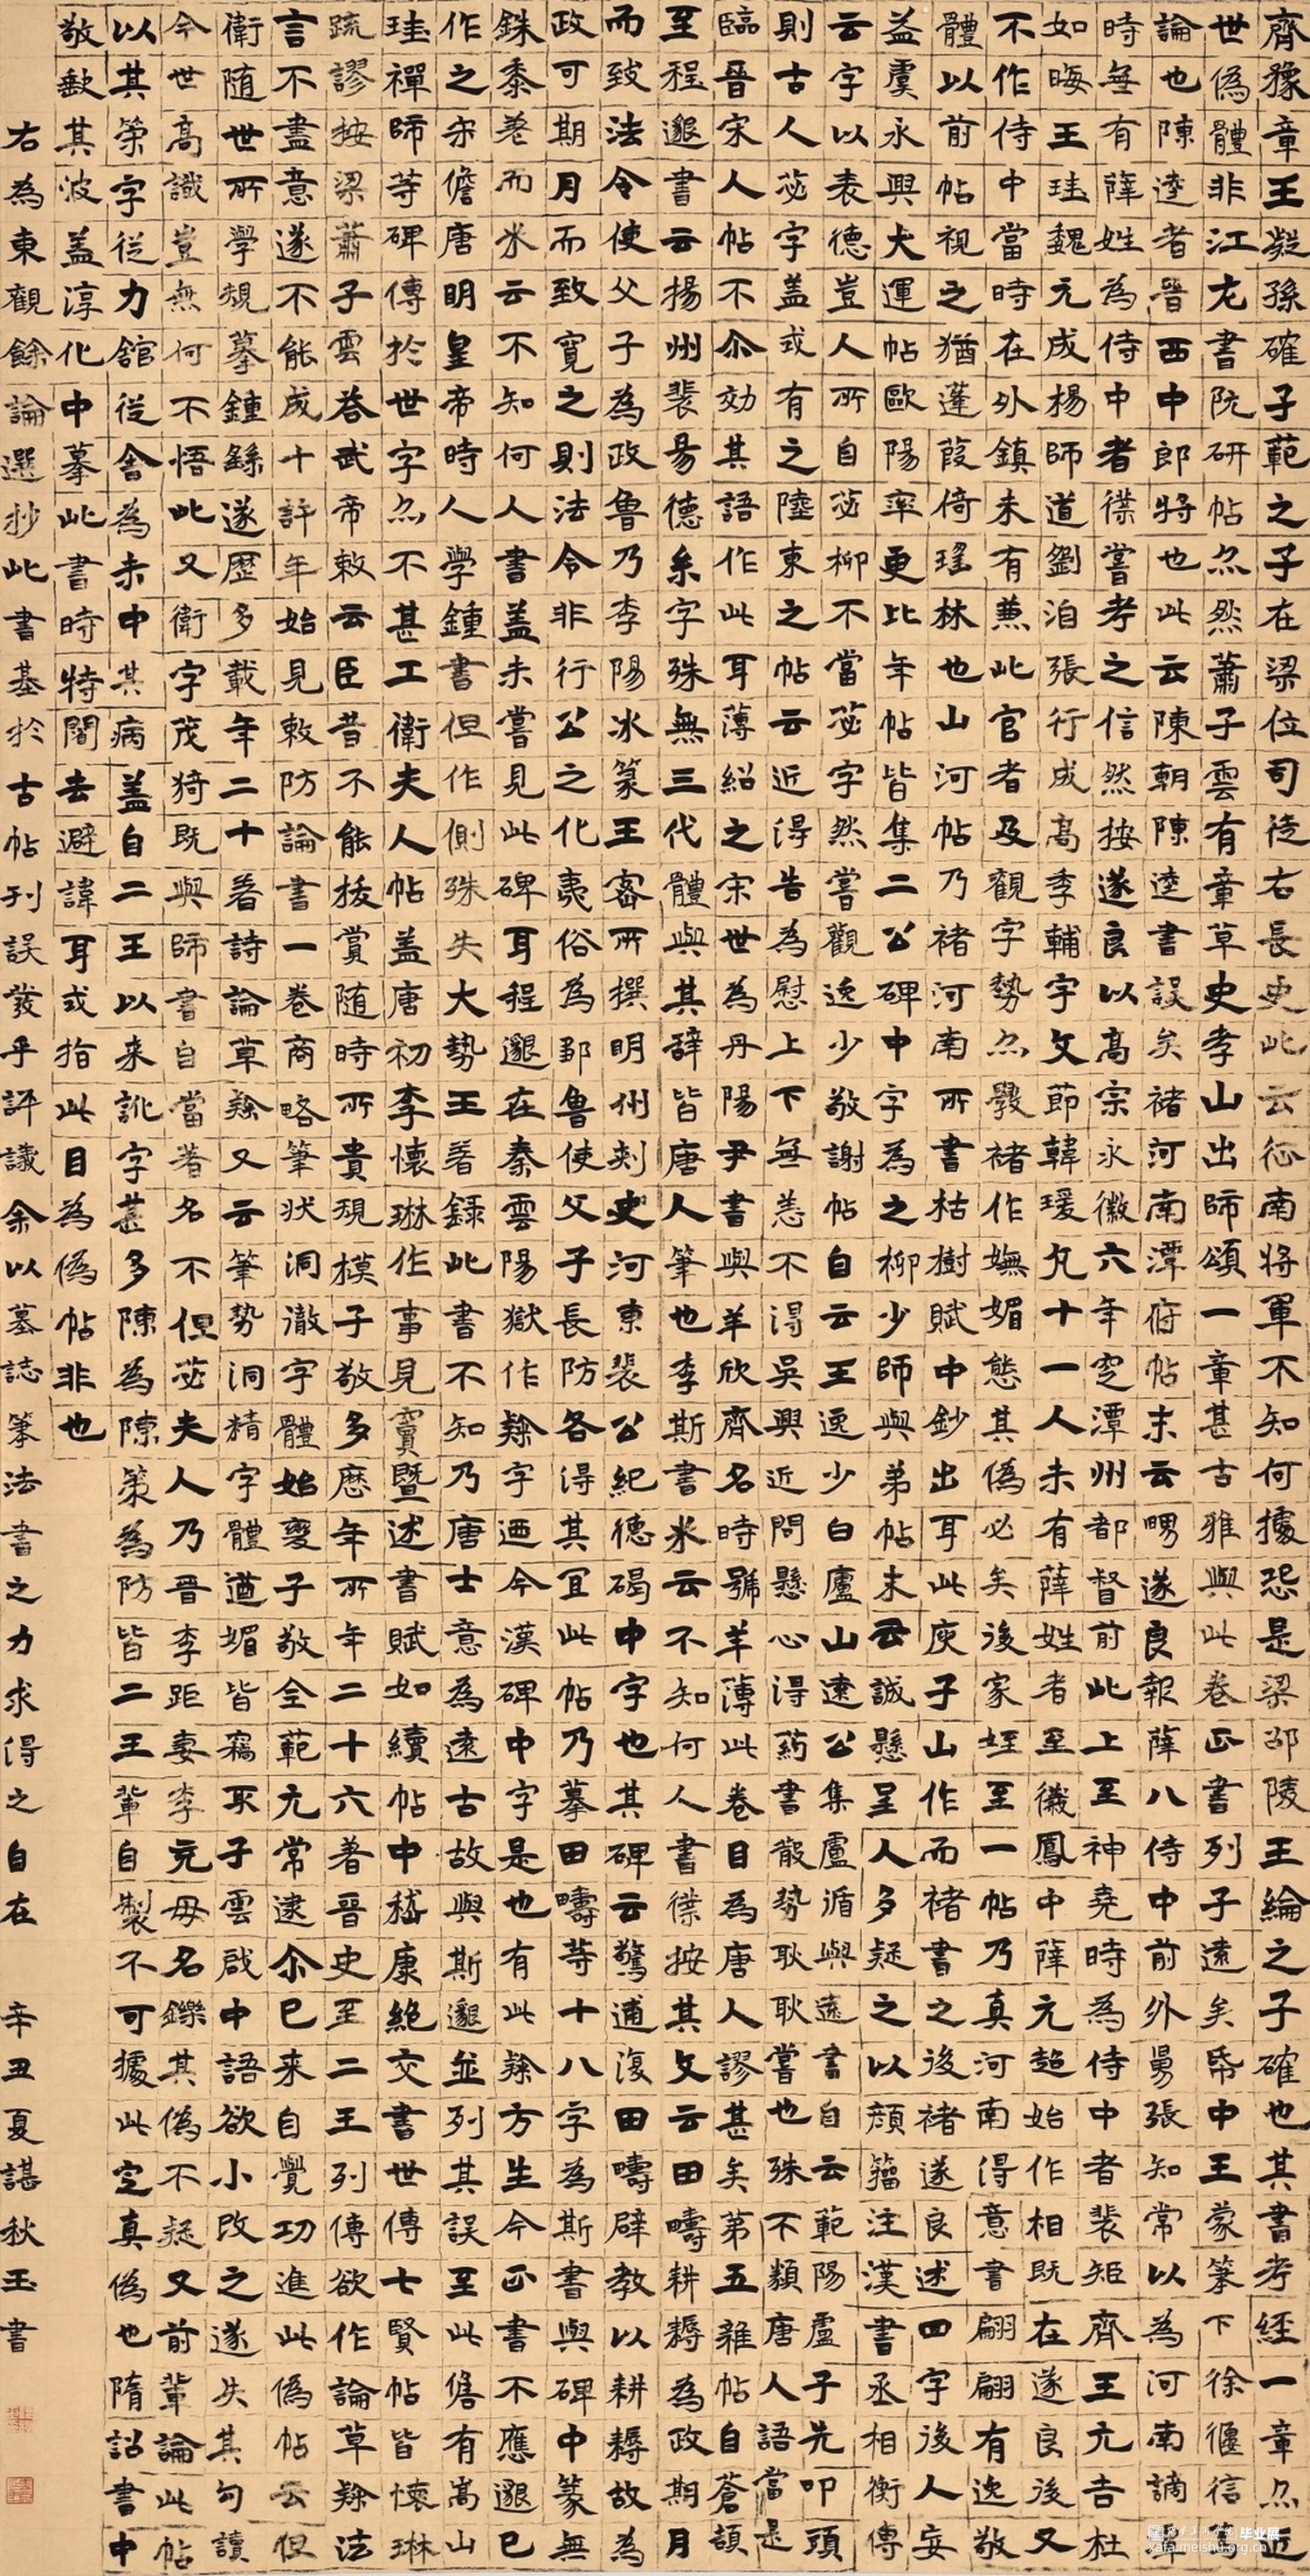 齊豫章王嶷孫確子範之子在梁位司徒右長史此云征南將軍不知何據恐是梁邵陵王綸之子確也其書考經一章亦近
世偽體非江左書阮研帖亦然蕭子雲有章草史孝山出師頌一章甚古雅與此卷正書列子遠矣帋中王蒙筆下徐偃信
論也陳逵者晉西中郎將也此云陳朝陳逵書誤矣褚河南潭府帖末云甥遂良報薛八侍中前外舅張知常以為河南謫
時無有薛姓為侍中者懌嘗考之信然按遂良以高宗永徽六年空潭州都督前此上至神堯時為侍中者裴矩齊王元吉杜
如晦王珪魏元成楊師道劉洎張行成高季輔宇文節韓瑗凡十一人未有薛姓者至徽鳳中薛元超始作相既在遂良後又
不作侍中當時在外鎮未有兼此官者及觀字勢亦斅褚作嫵媚態其偽必矣後家姪至一帖乃真河南得意書翩翩有逸敬
體以前帖視之猶蓬葭倚瑤林也山河帖乃褚河南所書枯樹賦中鈔出耳此庾子山作而褚書之後褚遂良述四字後人妄
益虞永興大運帖歐陽率更比年帖皆集二公碑中字為之柳少師與弟帖末云誠懸呈人多疑之以顏籀注漢書丞相衡傳
云字以表德豈人所自苾柳不當苾字然嘗觀逸少敬謝帖自云王逸少白廬山遠公集盧循與遠書自云範陽盧子先叩頭
則古人苾字蓋或有之陸柬之帖云近得告為慰上下無恙不得吳興近問懸心得藥書散勢耿耿嘗也殊不類唐人語當是
臨晉宋人帖不尒效其語作此耳薄紹之宋世為丹陽尹書與羊欣齊名時號羊薄此卷目為唐人謬甚矣第五雜帖自蒼頡
至程邈書云揚州裴昜德系字殊無三代體與其辭皆唐人筆也李斯書氷云不知何人書懌按其文云田疇耕耨為政期月
而致法令使父子為政魯乃李陽冰篆王密所撰明州刺史河東裴公紀德碣中字也其碑云驚逋復田疇辟教以耕耨故為
政可期月而致寬之則法令非行公之化夷俗為鄒魯使父子長防各得其宜此帖乃摹田疇等十八字為斯書與碑中篆無
銖黍差而氷云不知何人書蓋未嘗見此碑耳程邈在秦雲陽獄作隸字迺今漢碑中字是也有此隸方生今正書不應邈已
作之宋儋唐明皇帝時人學鍾書但作側殊失大勢王著錄此書不知乃唐士意為遠古故與斯邈並列其誤至此儋有嵩山
珪禪師等碑傳於世字亦不甚工衛夫人帖蓋唐初李懷琳作事見竇暨述書賦如續帖中嵇康絕交書世傳七賢帖皆懷琳
疏謬按梁蕭子雲答武帝敕云臣昔不能拔賞隨時所貴規模子敬多歷年所年二十六著晉史至二王列傳欲作論草隸法
言不盡意遂不能成十許年始見敕防論書一卷商略筆狀洞澈字體始變子敬全範元常逮尒已來自覺功進此偽帖云但
衛隨世所學規摹鍾繇遂歷多載年二十著詩論草隸又云筆勢洞精字體遒媚皆竊取子雲啟中語欲小改之遂失其句讀
今世高識豈無何不悟此又衛字茂猗既與師書自當著名不但苾夫人乃晉李距妻李充母名鑠其偽不疑又前輩論此帖
以其筞字從力舘從舍為未中其病蓋自二王以來訛字甚多陳為陳策為防皆二王輩自製不可據此定真偽也隋詔書中
敬歃其波蓋淳化中摹此書時特闊去避諱耳或指此目為偽帖非也
右為東觀餘論選抄此書基於古帖刊誤發乎評議余以墓誌筆法書之力求得之自在 辛丑夏諶秋玉書
毕业展
xafa.meishu.org.cn